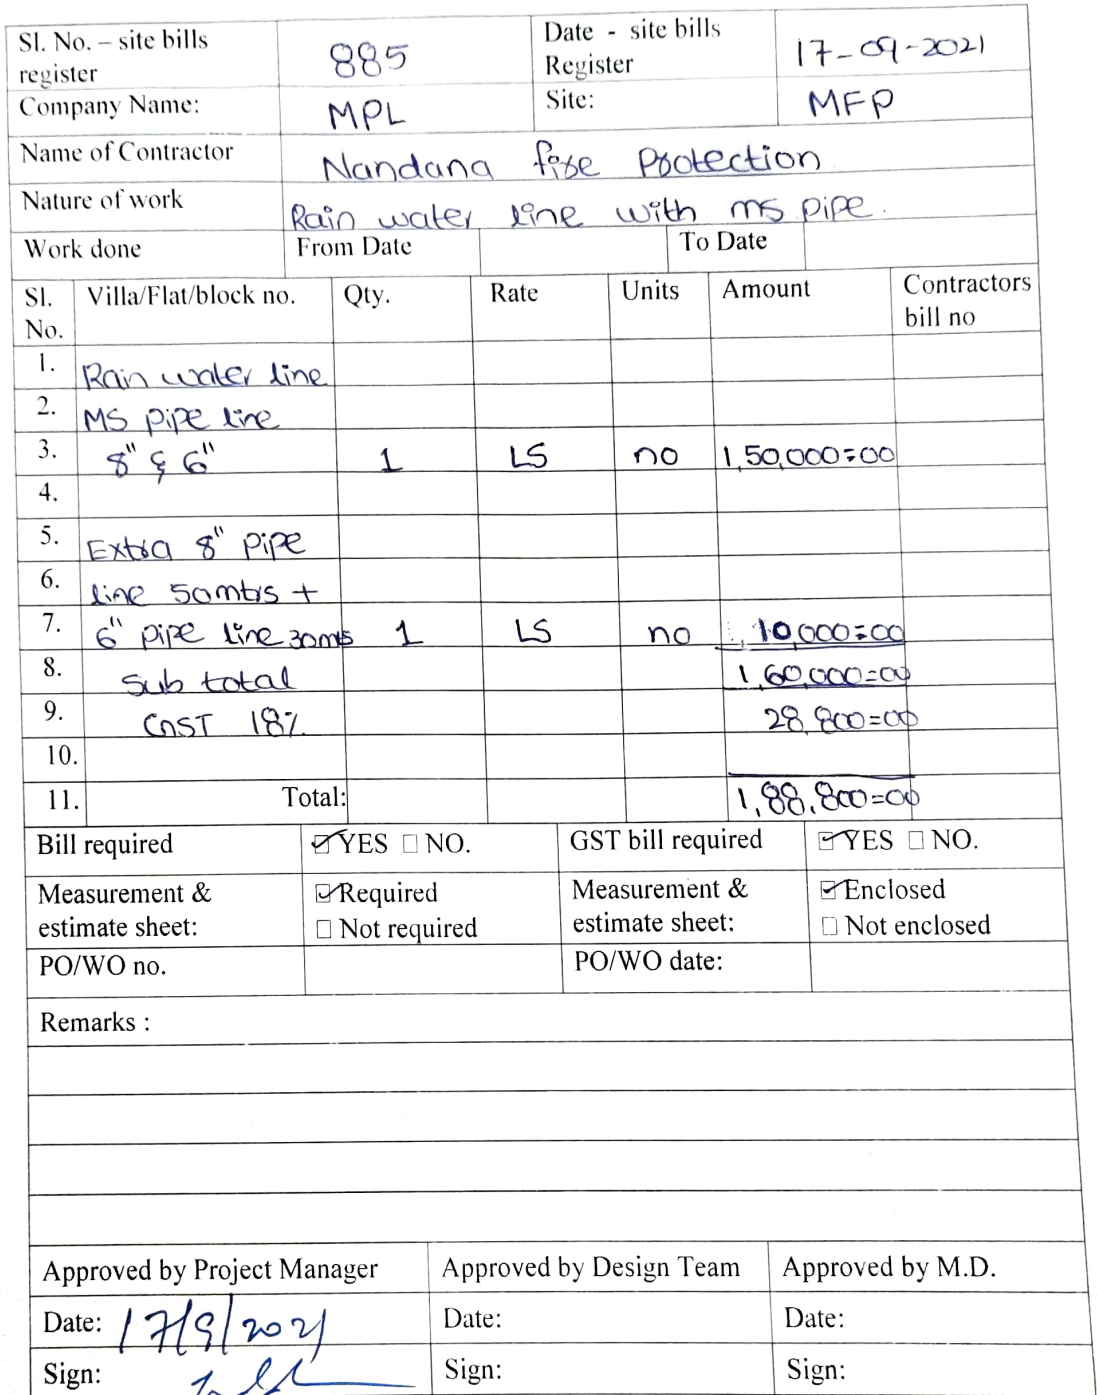 Sl. No. – site bills register 885 Date - site bills Register 17-09-2021
Company Name: MPL Site: MFP
Name of Contractor Nandana fire Protection
Nature of work Rain water line with ms pipe.
Work done From Date To Date
Sl. No. Villa/Flat/block no. Qty. Rate Units Amount Contractors bill no
1. Rain water line
2. MS pipe line
3. 8" & 6" 1 LS no 1,50,000=00
4.
5. Extra 8" pipe
6. line 50mtrs +
7. 6" pipe line 30mts 1 LS no 10,000=00
8. Sub total 1,60,000=00
9. GST 18% 28,800=00
10.
11. Total: 1,88,800=00
Bill required ☑YES ☐ NO. GST bill required ☑YES ☐ NO.
Measurement & estimate sheet: ☑Required ☐ Not required Measurement & estimate sheet: ☑Enclosed ☐ Not enclosed
PO/WO no. PO/WO date:
Remarks :
Approved by Project Manager Approved by Design Team Approved by M.D.
Date: 17/9/2021 Date: Date:
Sign: Sign: Sign: